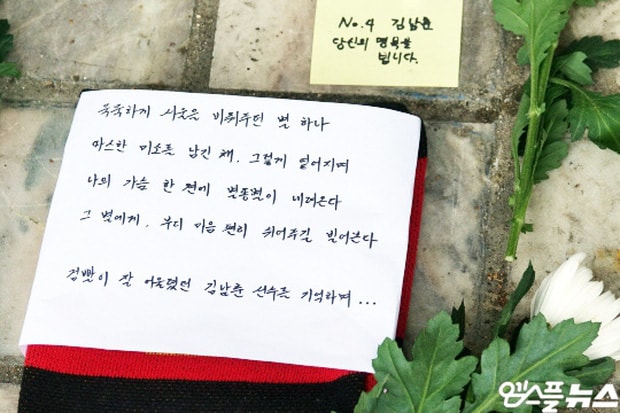 No.4 김남춘
당신의 명복을
빕니다.
묵묵하게 서울을 비춰주던 별 하나
따스한 미소를 남긴 채, 그렇게 멀어지며
나의 가슴 한 편에 별똥별이 내려온다
그 별에게, 부디 마음 편히 쉬어주길 빌어본다
검빨이 잘 어울렸던 김남춘 선수를 기억하며...
엠스플뉴스